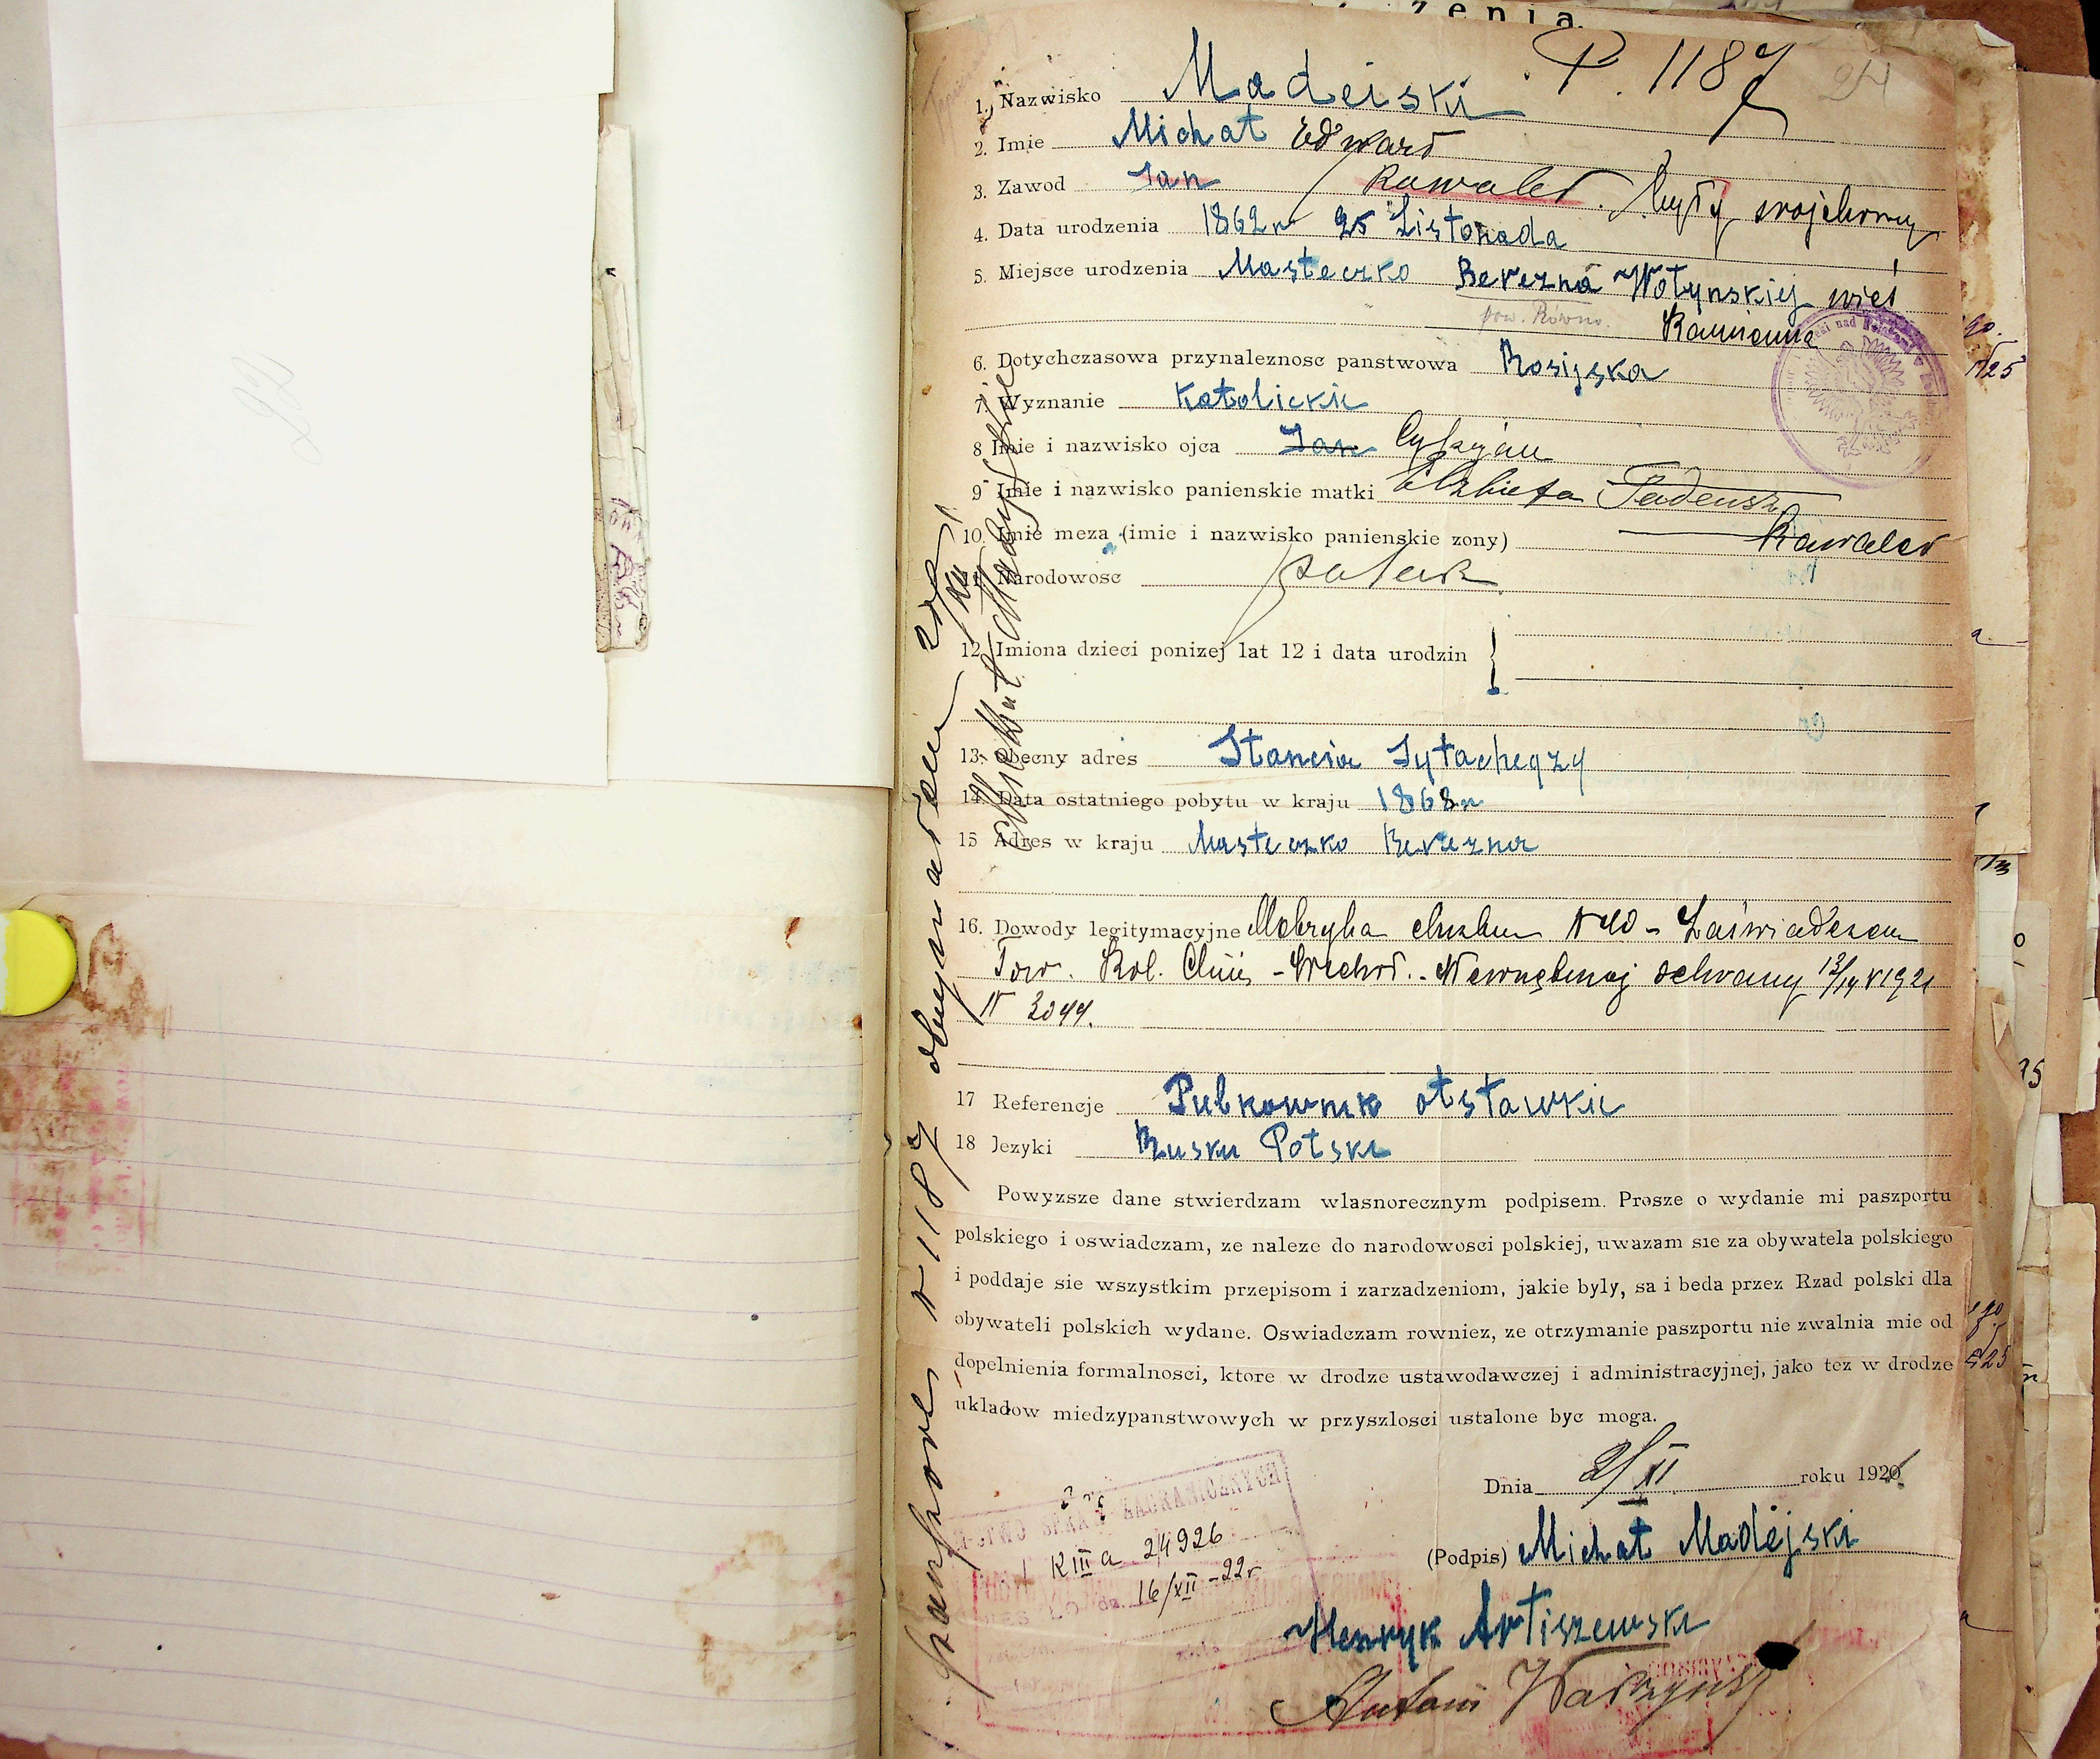 zenia
P. 1187
24
1. Nazwisko Madeiski
2. Imie Michał Edward
3. Zawod Jan Kawaler. były wojskowy
4. Data urodzenia 1862 r 25 Listopada
5. Miejsce urodzenia Masteczko Berezna Wołynskiej wieś
pow. Równo. Kamionna
6. Dotychczasowa przynaleznosc panstwowa Rosijska
7. Wyznanie Katolickie
8 Imie i nazwisko ojca Jan Cyprjan
9 Imie i nazwisko panienskie matki Elzbieta Tadeusz
10. Imie meza (imie i nazwisko panienskie zony) Kawaler
11. Narodowosc polak
12. Imiona dzieci ponizej lat 12 i data urodzin
13. obecny adres Stancia
14. Data ostatniego pobytu w kraju 1868 r
15 Adres w kraju Masteczko Berezna
16. Dowody legitymacyjne Metryka chrztu N 40 - Zaświadczen
Tow. Kol. Chin - Wschod. - ochrany 13/IV 1921
N 3044.
17 Referencje Pulkownik otstawkie
18 Jezyki Rusku Polski
Powyzsze dane stwierdzam wlasnorecznym podpisem. Prosze o wydanie mi paszportu
polskiego i oswiadczam, ze naleze do narodowosci polskiej, uwazam sie za obywatela polskiego
i poddaje sie wszystkim przepisom i zarzadzeniom, jakie byly, sa i beda przez Rzad polski dla
obywateli polskich wydane. Oswiadczam rowniez, ze otrzymanie paszportu nie zwalnia mie od
dopelnienia formalnosci, ktore w drodze ustawodawczej i administracyjnej, jako tez w drodze
ukladow miedzypanstwowych w przyszlosci ustalone byc moga.
Dnia 2/XI roku 1920
(Podpis) Michał Madejski
Henryk Artiszewski
Antoni
SPRAW ZAGRANICZNYCH
K III a 24926
16/XII-22 r
Paszport N 1187 otrzymałem
22